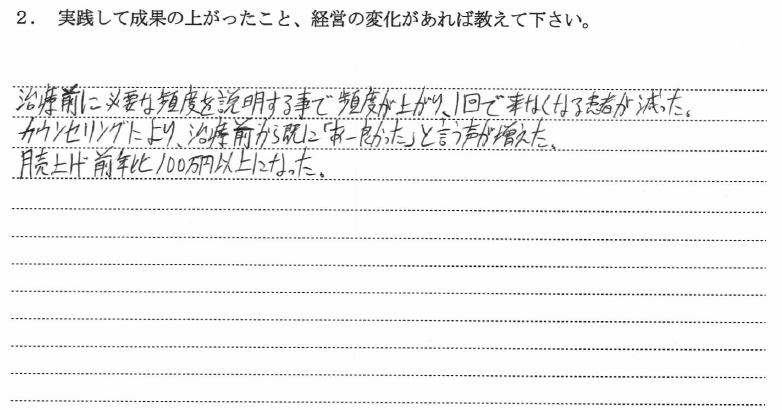 2. 実践して成果の上がったこと、経営の変化があれば教えて下さい。
治療前に必要な頻度を説明する事で頻度が上がり、1回で来なくなる患者が減った。
カウンセリングにより、治療前から既に「あー良かった」と言う声が増えた。
月売上げ前年比100万円以上になった。